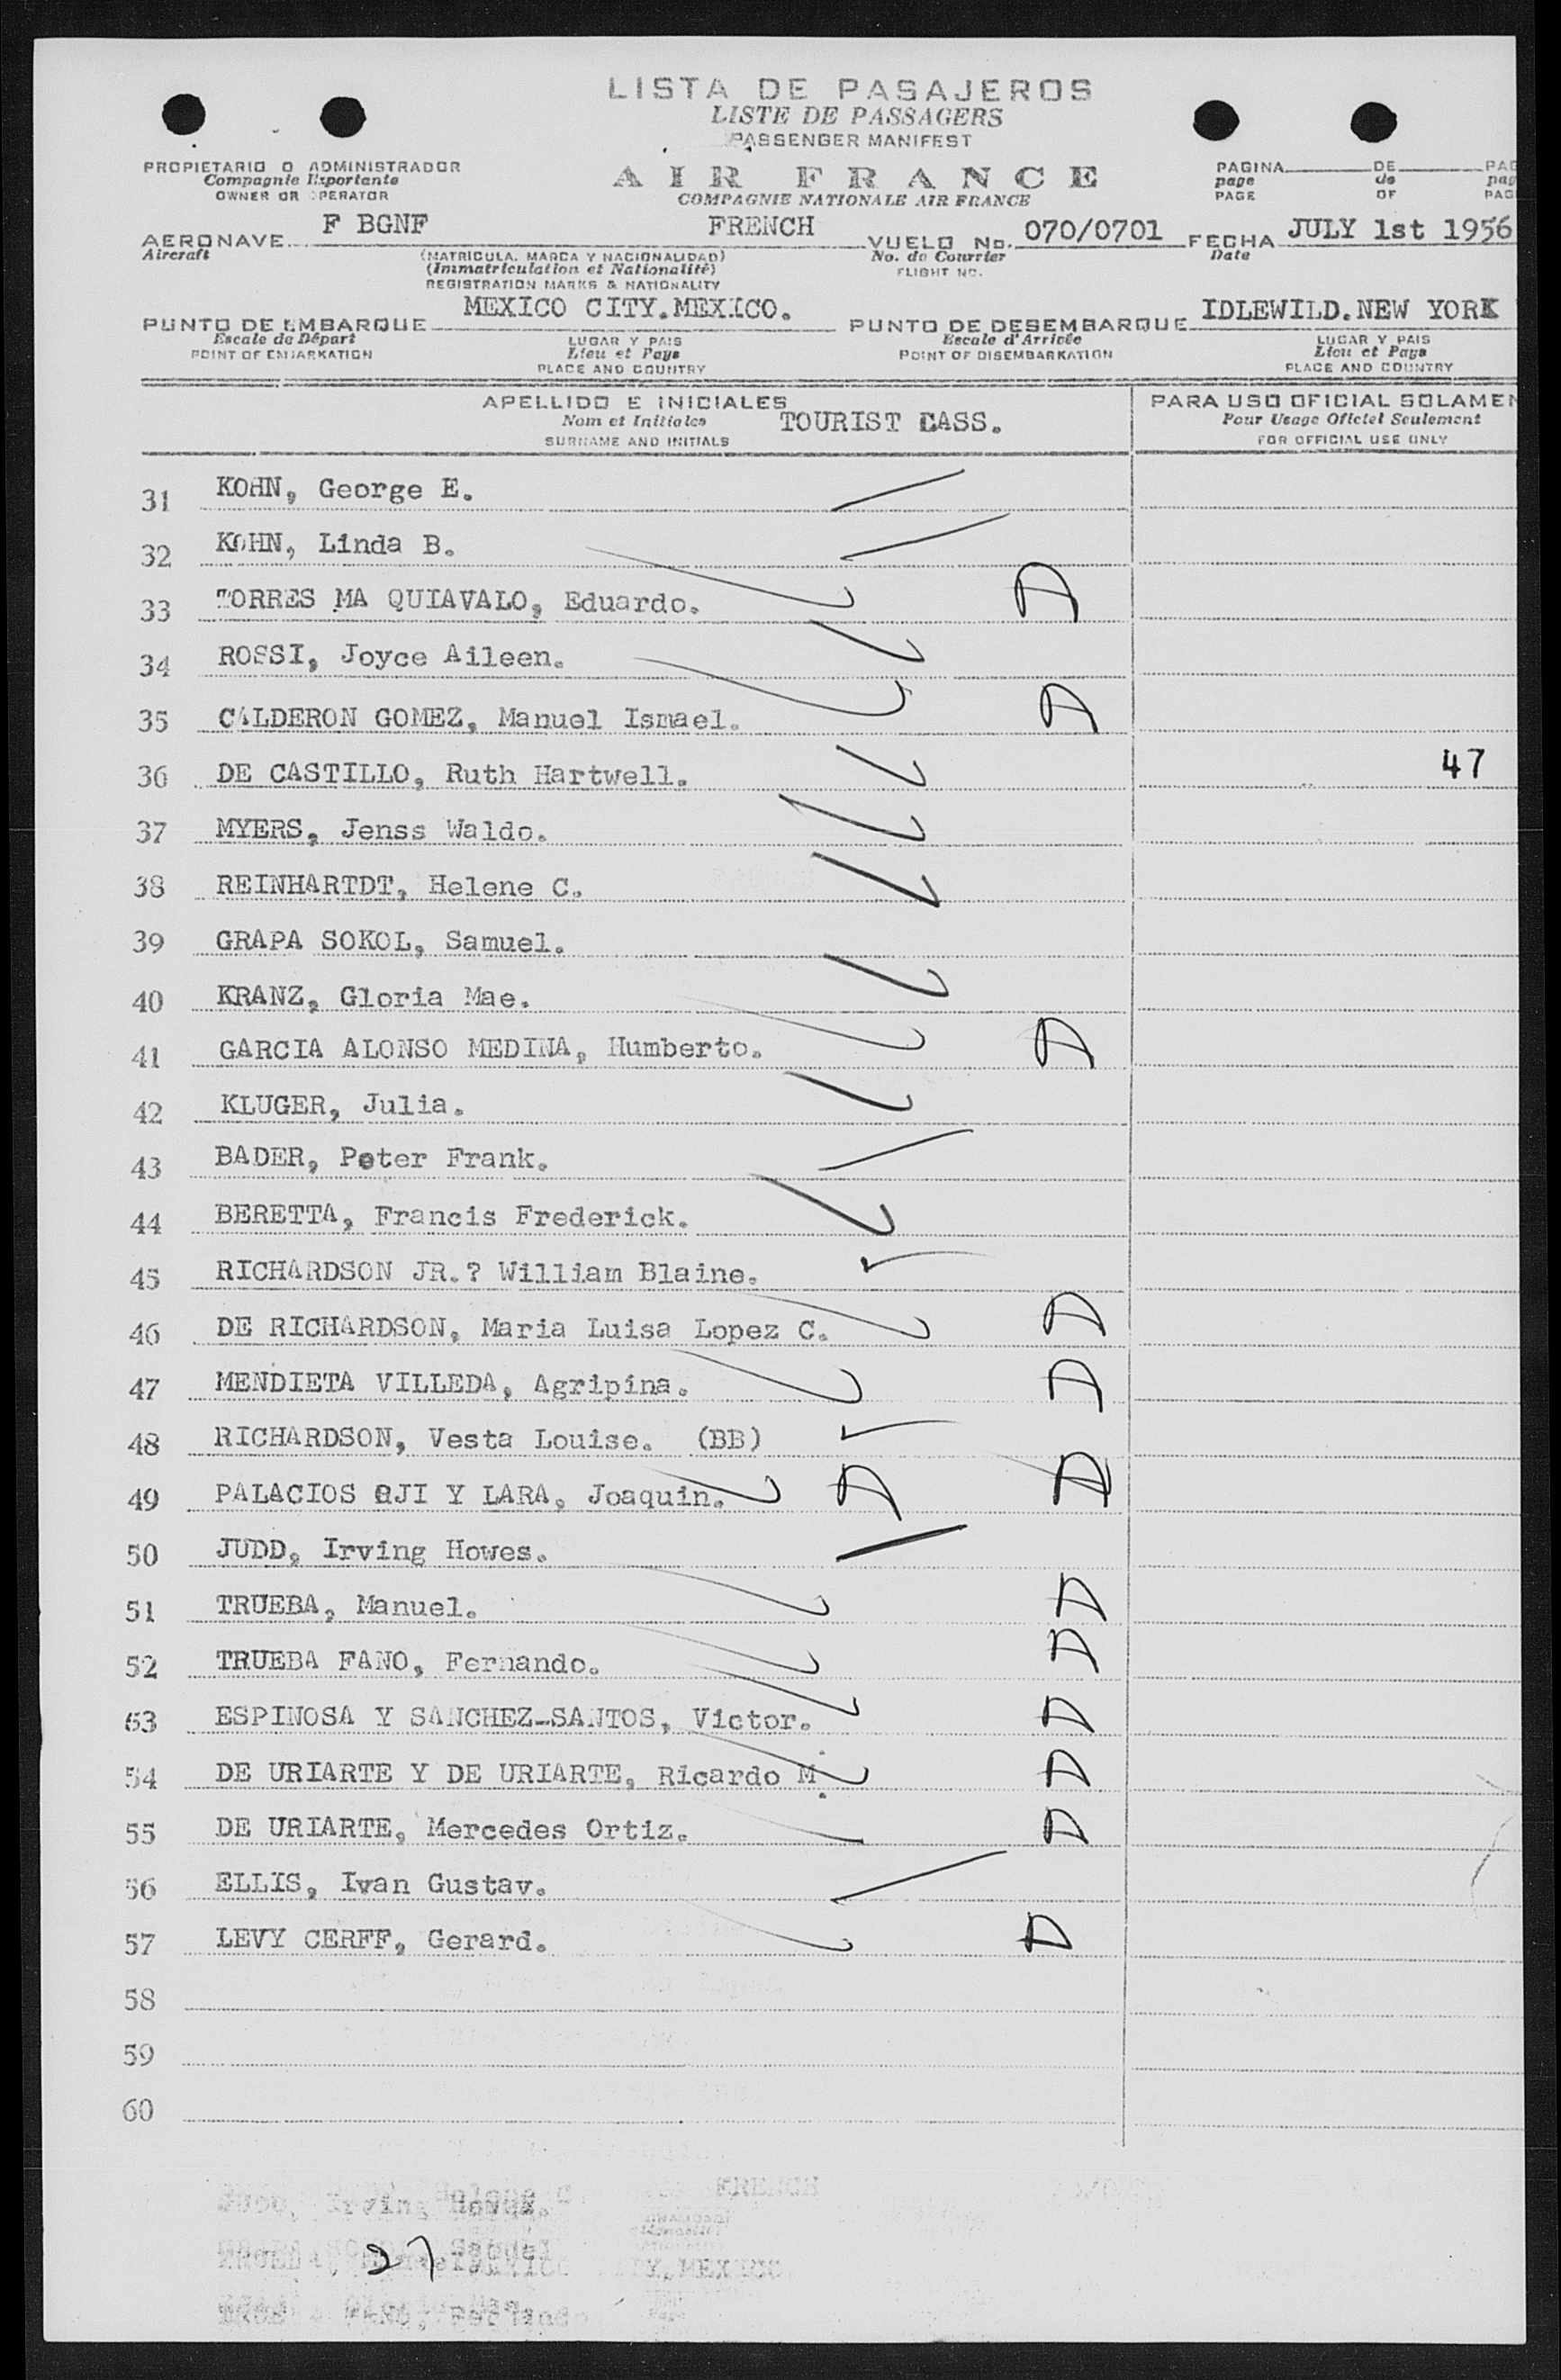 LISTA DE PASAJEROS
LISTE DE PASSAGERS
PASSENGER MANIFEST
PROPIETARIO O ADMINISTRADOR
Compagnie Exportante
OWNER OR OPERATOR
AIR FRANCE
COMPAGNIE NATIONALE AIR FRANCE
PAGINA DE PAG
page de pag
PAGE OF PAG
AERONAVE F BGNF FRENCH VUELO No. 070/0701 FECHA JULY 1st 1956
Aircraft No. de Courrier Date
(MATRICULA. MARCA Y NACIONALIDAD) FLIGHT NO.
(Immatriculation et Nationalité)
REGISTRATION MARKS & NATIONALITY
PUNTO DE EMBARQUE MEXICO CITY.MEXICO. PUNTO DE DESEMBARQUE IDLEWILD.NEW YORK
Escale de Départ LUGAR Y PAIS Escale d'Arrivée LUGAR Y PAIS
POINT OF EMBARKATION Lieu et Pays POINT OF DISEMBARKATION Lieu et Pays
PLACE AND COUNTRY PLACE AND COUNTRY
APELLIDO E INICIALES PARA USO OFICIAL SOLAMEN
Nom et Initiales TOURIST CASS. Pour Usage Oficiel Seulement
SURNAME AND INITIALS FOR OFFICIAL USE ONLY
31 KOHN, George E.
32 KOHN, Linda B.
33 TORRES MA QUIAVALO, Eduardo. D
34 ROSSI, Joyce Aileen.
35 CALDERON GOMEZ, Manuel Ismael. D
36 DE CASTILLO, Ruth Hartwell. 47
37 MYERS, Jenss Waldo.
38 REINHARTDT, Helene C.
39 GRAPA SOKOL, Samuel.
40 KRANZ, Gloria Mae.
41 GARCIA ALONSO MEDINA, Humberto. D
42 KLUGER, Julia.
43 BADER, Peter Frank.
44 BERETTA, Francis Frederick.
45 RICHARDSON JR.? William Blaine.
46 DE RICHARDSON, Maria Luisa Lopez C. D
47 MENDIETA VILLEDA, Agripina. D
48 RICHARDSON, Vesta Louise. (BB)
49 PALACIOS OJI Y LARA, Joaquin. D D
50 JUDD, Irving Howes.
51 TRUEBA, Manuel. D
52 TRUEBA FANO, Fernando. D
53 ESPINOSA Y SANCHEZ-SANTOS, Victor. D
54 DE URIARTE Y DE URIARTE, Ricardo M. D
55 DE URIARTE, Mercedes Ortiz. D
56 ELLIS, Ivan Gustav.
57 LEVY CERFF, Gerard. D
58
59
60
FRENCH
27